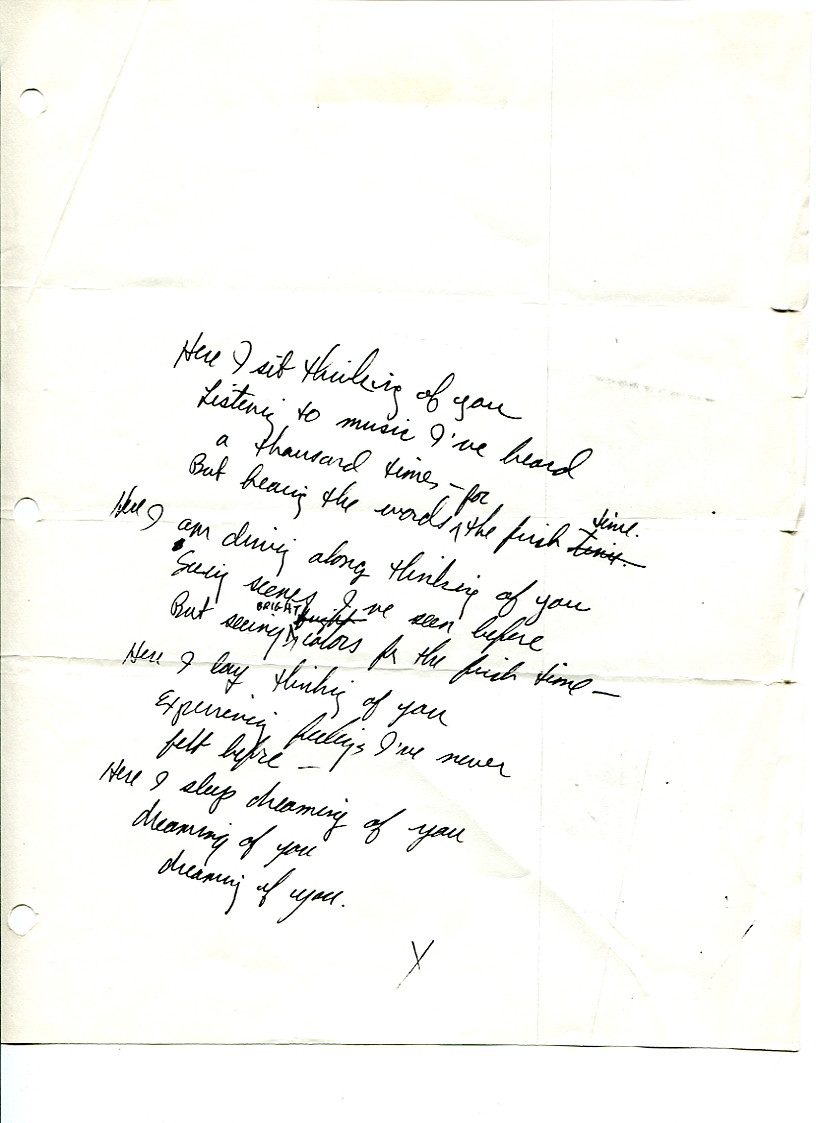 Here I sit thinking of you
Listening to music I've heard
a thousand times - for
But hearing the words the first time. time.
Here I am driving along thinking of you
Seeing scenes I've seen before
But seeing BRIGHT bright colors for the first time -
Here I lay thinking of you
Experiencing feelings I've never
felt before -
Here I sleep dreaming of you
dreaming of you
dreaming of you.
X